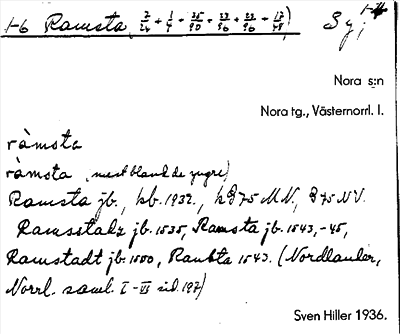 1-6 Ramsta (2/24 + 1/4 + 25/90 + 23/96 + 23/96 + 17/48)
Nora s:n
Nora tg., Västernorrl. l.
ràmsta
ràmsta (mest bland de yngre)
Ramsta jb., kb. 1932., k G75 M.N., G 75 NV.
Ramsstadz jb. 1535, Ramsta jb. 1543, -45,
Ramstadt jb. 1550, Rambta 1543. (Nordlander,
Norrl. saml. I-VI sid. 197)
Sven Hiller 1936.